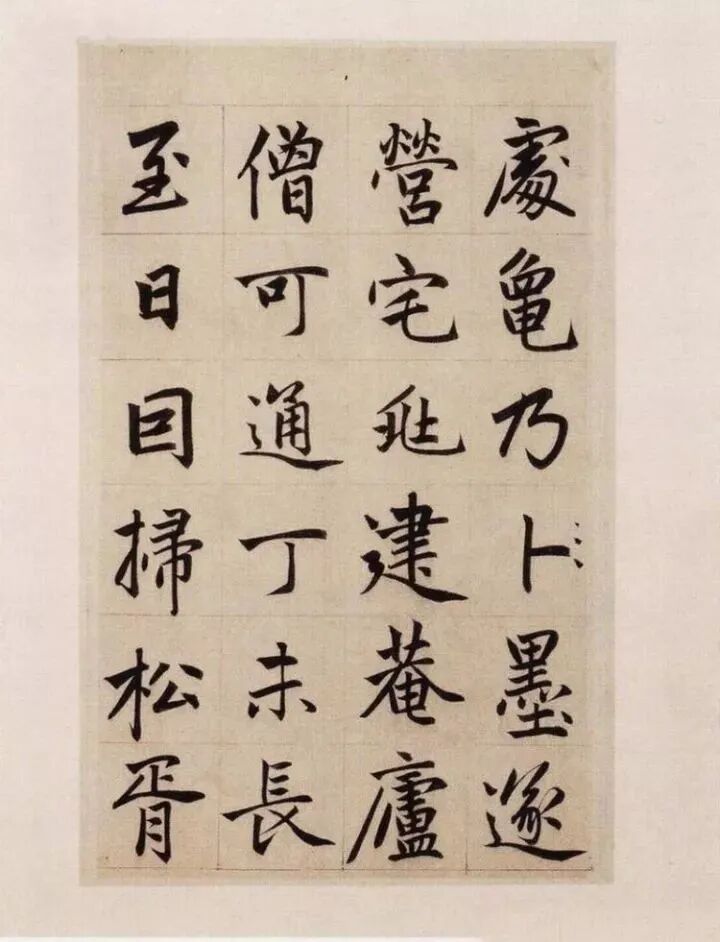 處龜乃卜墨遂
營宅垗建菴廬
僧可通丁未長
至日囙掃松胥